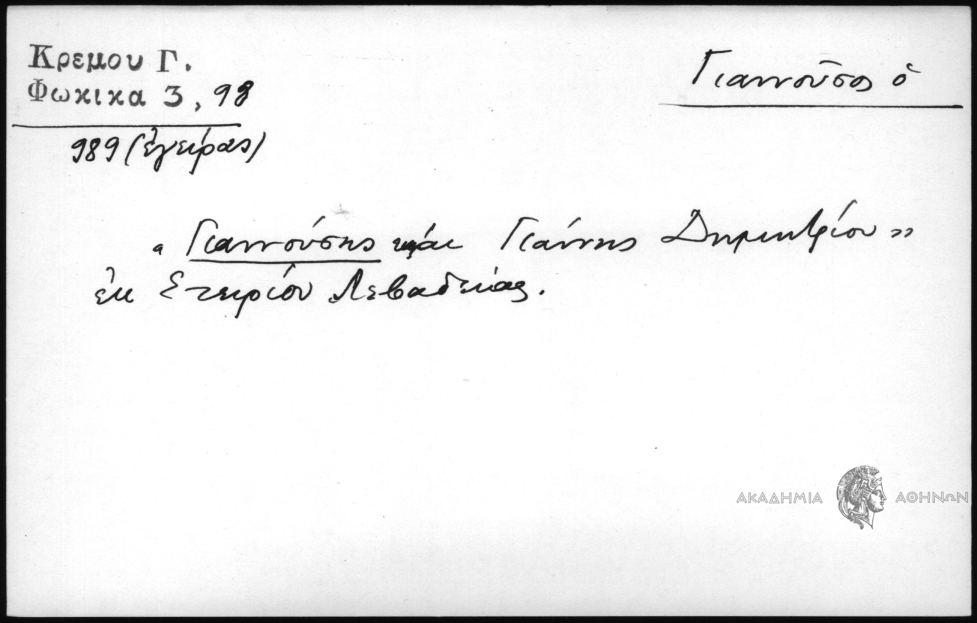 Κρεμου Γ.
Φωκικα 3, 98
Γιαννοῦσος ὁ
989 (ἐγείρας)
« Γιαννούσης καὶ Γιάννης Δημητρίου »
ἐκ Στειρίου Λεβαδείας.
ΑΚΑΔΗΜΙΑ ΑΘΗΝΩΝ